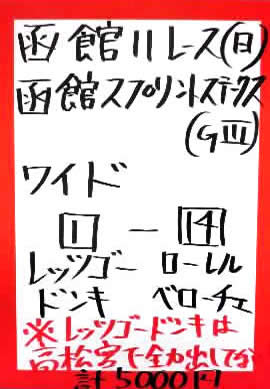 函館11レース(日)
函館スプリントステークス
(GⅢ)
ワイド
1 － 14
レッツゴー ローレル
ドンキ ベローチェ
※レッツゴードンキは
高松宮で全力出してる
計5000円